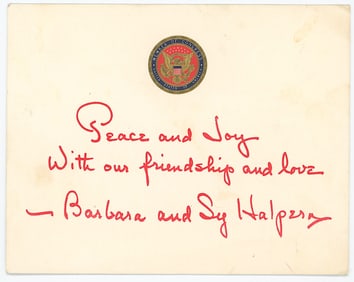 Peace and Joy
With our friendship and love
— Barbara and Sy Halpern